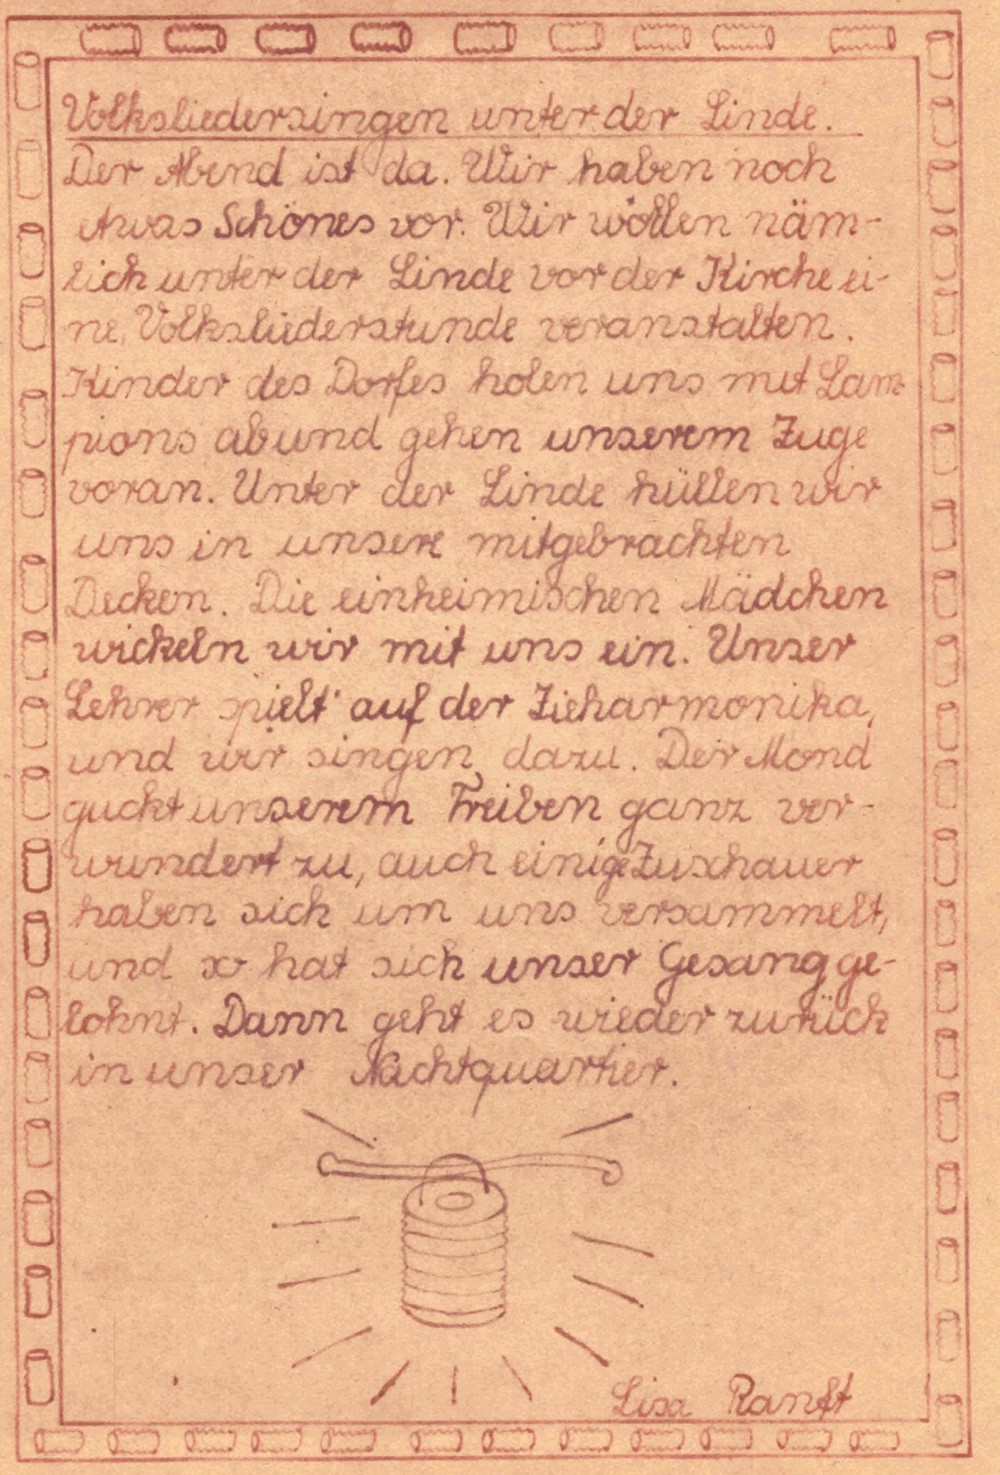 Volksliedersingen unter der Linde.
Der Abend ist da. Wir haben noch
etwas Schönes vor. Wir wollen näm-
lich unter der Linde vor der Kirche ei-
ne Volksliederstunde veranstalten.
Kinder des Dorfes holen uns mit Lam-
pions ab und gehen unserem Zuge
voran. Unter der Linde hüllen wir
uns in unsere mitgebrachten
Decken. Die einheimischen Mädchen
wickeln wir mit uns ein. Unser
Lehrer spielt auf der Zieharmonika,
und wir singen dazu. Der Mond
guckt unserem Treiben ganz ver-
wundert zu, auch einige Zuschauer
haben sich um uns versammelt,
und so hat sich unser Gesang ge-
lohnt. Dann geht es wieder zurück
in unser Nachtquartier.
Lisa Ranft